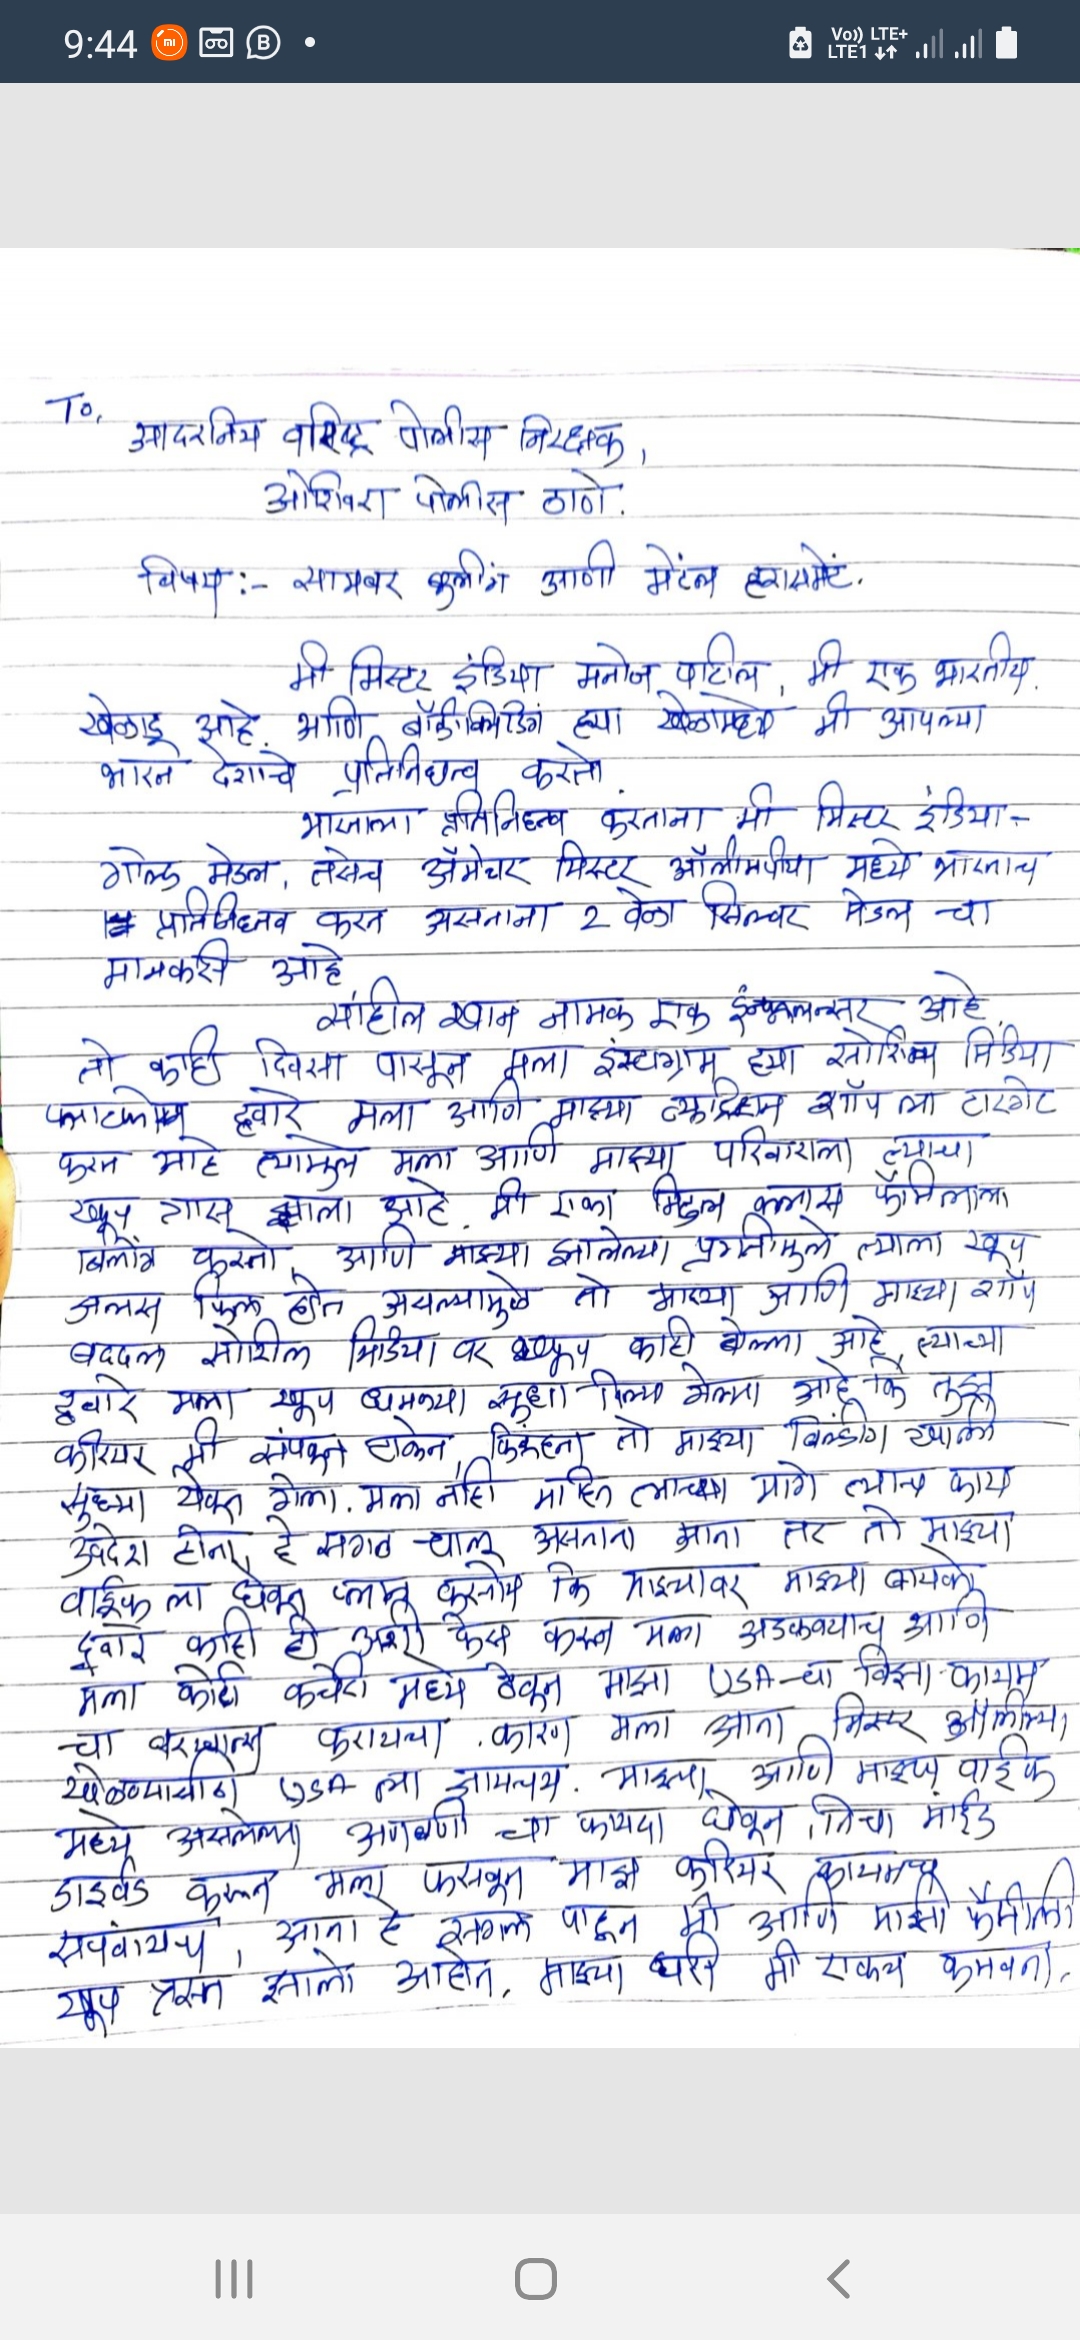 9:44
Vo)) LTE+
LTE1
To,
आदरनिय वरिष्ठ पोलीस निरक्षक,
ओशिवरा पोलीस ठाणे.
विषय :- सायबर बुलींग आणी मेंटल हरासमेंट.
मी मिस्टर इंडिया मनोज पाटील, मी एक भारतीय
खेळाडू आहे. आणि बॉडीबिल्डिंग ह्या खेळामध्ये मी आपल्या
भारत देशाचे प्रतिनिधत्व करतो.
भारताला प्रतिनिधत्व करताना मी मिस्टर इंडिया-
गोल्ड मेडल, तसेच अ‍ॅमेचर मिस्टर ऑलीमपीया मध्ये भारताच
प्रतिनिधत्व करत असताना 2 वेळा सिल्वर मेडल चा
मानकरी आहे.
साहील खान नामक एक इंन्फ्लुलन्सर आहे.
तो काही दिवसा पासून मला इंस्टाग्राम ह्या सोशिल मिडिया
प्लाटफॉम द्वारे मला आणि माझ्या न्युट्रिशन शॉप ला टारगेट
करत आहे त्यामुळे मला आणि माझ्या परिवाराला त्याचा
खूप त्रास झाला आहे. मी एका मिडल क्लास फॅमिलीला
बिलाँग करतो, आणि माझ्या झालेल्या प्रगतीमुले त्याला खूप
जलस फिल होत असल्यामुळे तो माझ्या आणि माझ्या शॉप
बददल सोशील मिडिया वर खूप काही बोलला आहे, त्याच्या
द्वारे मला खूप धमक्या सुध्दा दिल्या गेल्या आहे कि तुझ
करियर मी संपवून टाकेन, किंबहुना तो माझ्या बिल्डींग खाली
सुध्दा येवून गेला. मला नाही माहित त्याच्या मागे त्याचा काय
उद्देश होता, हे सगळ चालू असताना आता तर तो माझ्या
वाईफ ला घेवून प्लान करतोय कि माझ्यावर माझ्या बायको
द्वारे काही ही अशी केस करून मला अडकवयाच आणि
मला कोर्ट कचेरी मध्ये ठेवून माझा USA-चा विझा कायम
चा करायचा. कारण मला आता मिस्टर ऑलंम्पिया
खेळण्यासाठी USA ला जायचय. माझ्या आणि माझ्या वाईफ
मध्ये असलेल्या अणबणी चा फायदा घेवून, तिचा माईंड
डाइवर्ड करून मला फसवून माझ करियर कायमच
संपवायच, आता हे सगल पाहून मी आणि माझी फॅमीली
खूप त्रस्त झालो आहोत. माझ्या घरी मी एकच कमवता.